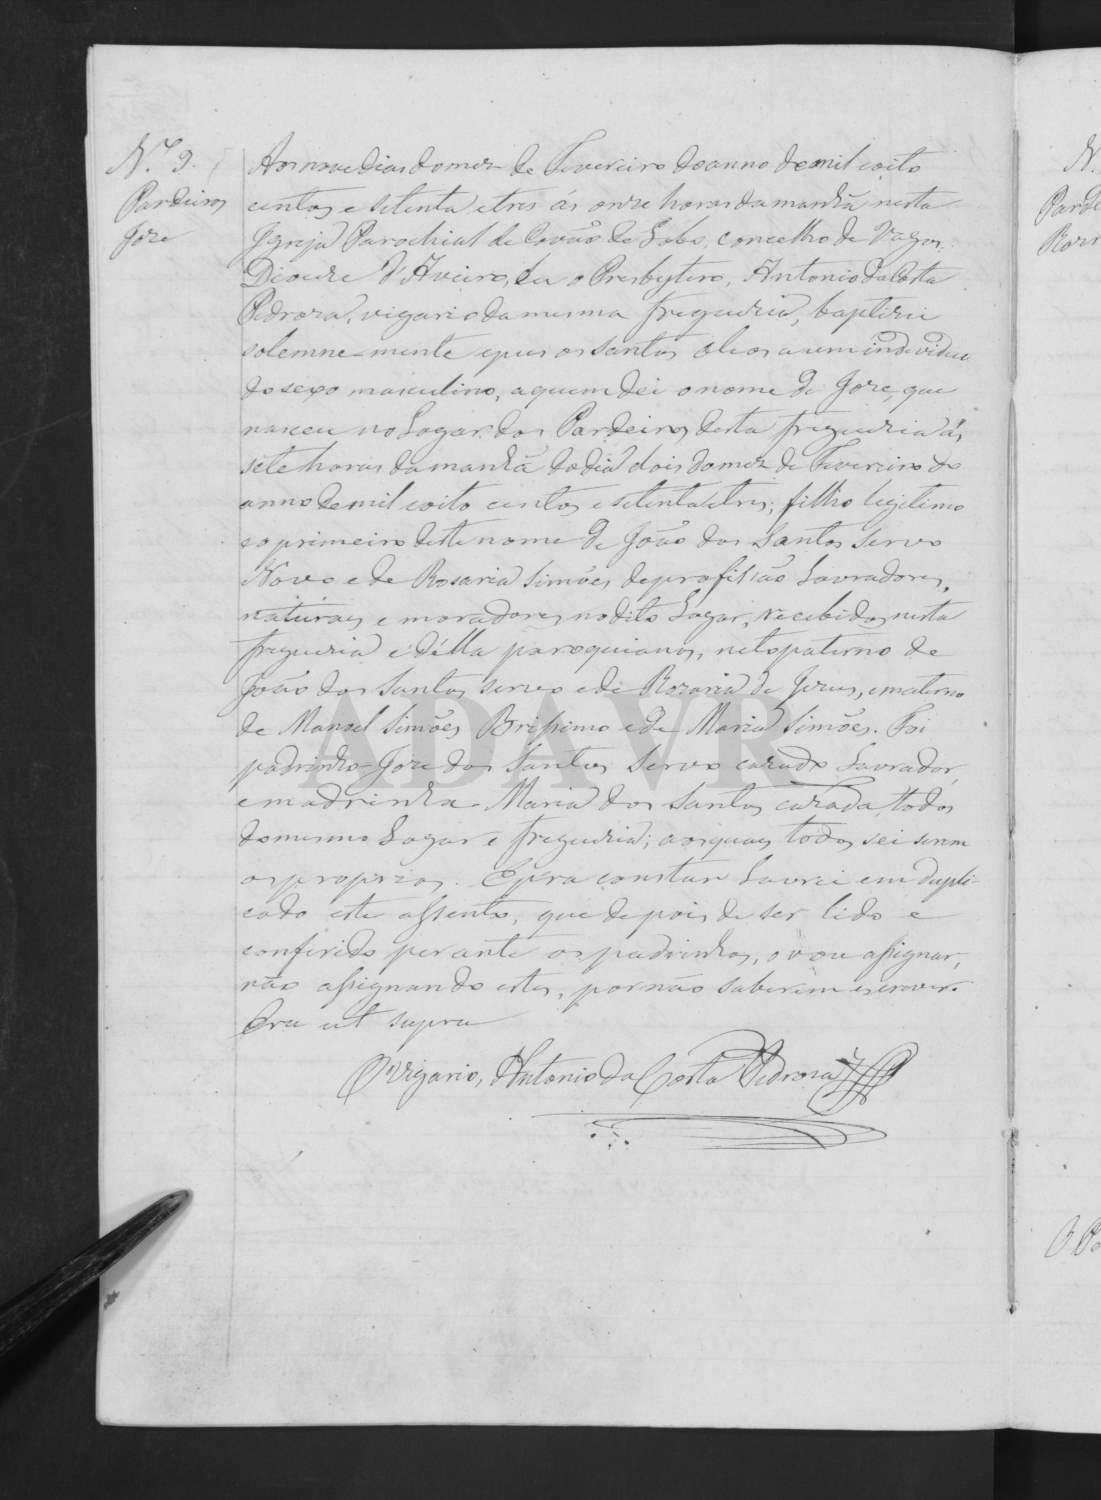 N.º 9.
Pardeiros
Joze
Aos nove dias do mez de Fevereiro do anno de mil eoito
centos e setenta etres ás onze horas da manhã nesta
Igreja Parochial de Covão do Lobo, concelho de Vagos,
Diocese d'Aveiro, Eu o Presbytero, Antonio da Costa
Pedroza, vigario da mesma freguezia, baptizei
solemne-mente epus os santos oleos a um individuo
do sexo masculino, aquem dei o nome de Joze, que
nasceu no Logar dos Pardeiros desta freguezia ás
sete horas da manhã do dia dois do mez de Fevereiro do
anno de mil eoito centos e setenta etres; filho legitimo
eo primeiro deste nome de João dos Santos Servo
Novo e de Rosaria Simões de profissão Lavradores,
naturaes e moradores no dito Logar, recebidos nesta
freguezia e d'élla paroquianos, neto paterno de
João dos Santos servo e de Rozaria de Jezus, ematerno
de Manoel Simões Brissimo ede Maria Simões. Foi
padrinho Joze dos Santos Servo cazado Lavrador,
e madrinha Maria dos Santos cazada, todos
do mesmo Logar e freguezia; aos quaes todos sei serem
os proprios. Epara constar Lavrei em dupli-
cado este assento, que depois de ser lido e
conferido perante os padrinhos, o vou assignar,
não assignando estes, por não saberem escrever.
Era ut supra
O Vigario, Antonio da Costa Pedroza
ADAVR
N.
O Pa